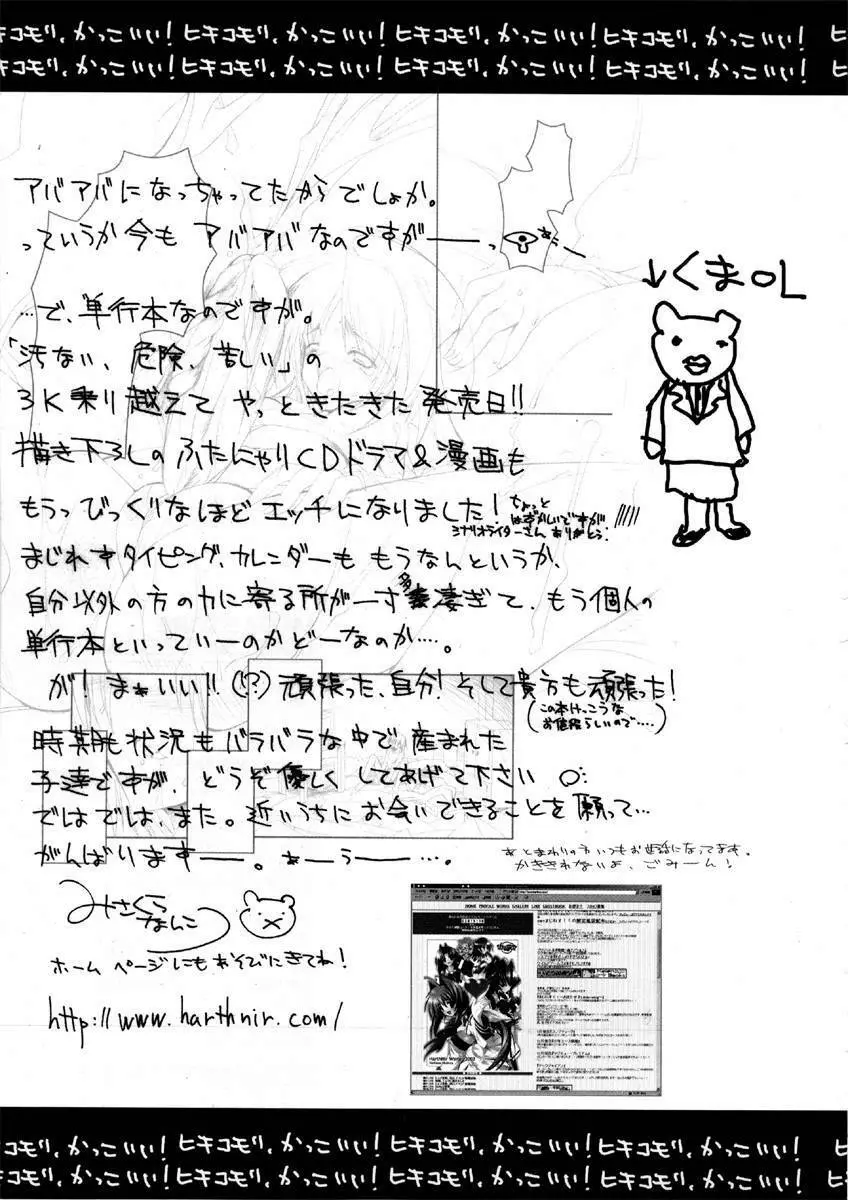 ヒキコモリ、かっこいい!ヒキコモリ、かっこいい!ヒキコモリ、かっこいい!ヒキコモリ、かっこいい!
ヒキコモリ、かっこいい!ヒキコモリ、かっこいい!ヒキコモリ、かっこいい!ヒキコモリ、かっこいい!
アバアバになっちゃってたからでしょか。
っていうか今も アバアバなのですがーーっ
↓くまOL
…で、単行本なのですが。
「汚ない、危険、苦しい」の
3K乗り越えて やっときたきた発売日!!
描き下ろしのふたにゃりCDドラマ&漫画も
もうっびっくりなほど エッチになりました!
ちょっと
はずかしいですが
シナリオライターさん ありがとう!
まじれすタイピング、カレンダーも もうなんというか、
自分以外の方の力に寄る所が一寸多凄ぎて、もう個人の
単行本といっていーのかどーなのか…。
が! まぁいい!!(!?)頑張った、自分!そして貴方も頑張った!
(この本けっこうな
お値段らしいので….)
時期も状況もバラバラな中で産まれた
子達ですが、どうぞ優しくしてあげて下さい
ではでは、また。近いうちにお会いできることを願って…
がんばりますーー。ぁーぅー…。
あとまわりの方いつもお世話になってます。
かききれないよ、ごみーん!
みさくらなんこつ
ホームページにもあそびにきてね!
http://www.harthnir.com/
ヒキコモリ、かっこいい!ヒキコモリ、かっこいい!ヒキコモリ、かっこいい!ヒキコモリ、かっこいい!
ヒキコモリ、かっこいい!ヒキコモリ、かっこいい!ヒキコモリ、かっこいい!ヒキコモリ、かっこいい!